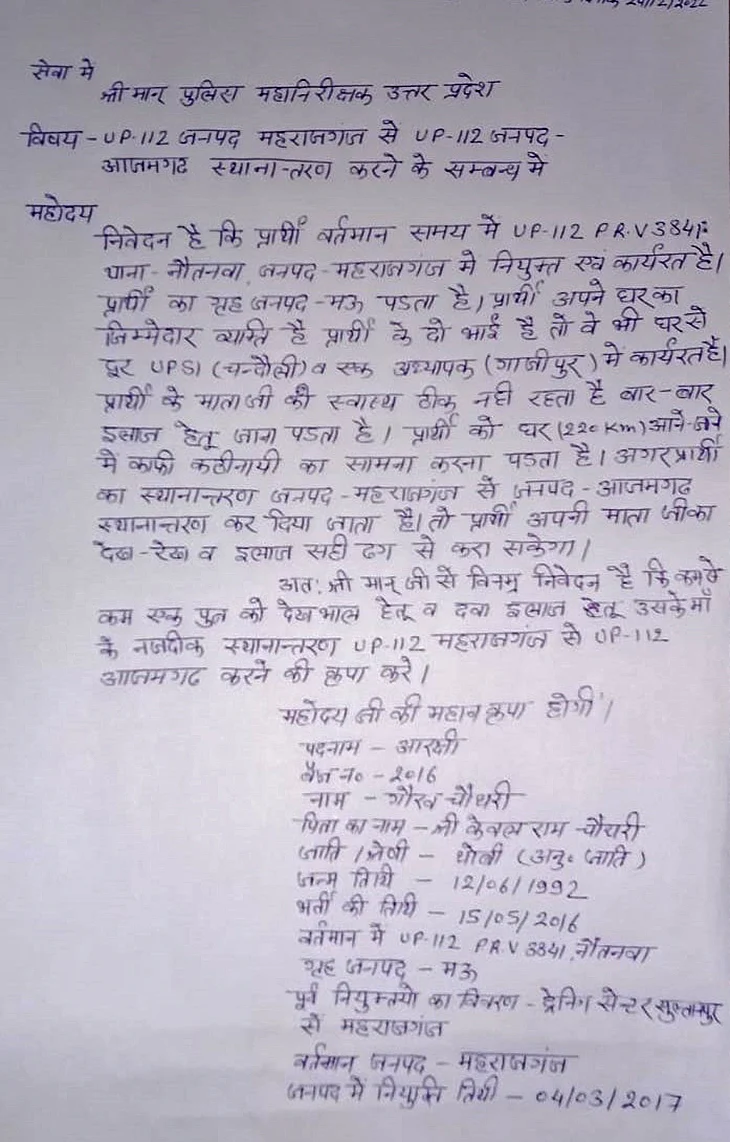 दिनांक 24/12/2022
सेवा मे
श्री मान् पुलिस महानिरीक्षक उत्तर प्रदेश
विषय - UP-112 जनपद महराजगंज से UP-112 जनपद -
आजमगढ स्थाना-तरण करने के सम्बन्ध मे
महोदय
निवेदन है कि प्रार्थी वर्तमान समय में UP-112 P.R.V 3841
थाना - नौतनवा, जनपद - महराजगंज मे नियुक्त एवं कार्यरत है।
प्रार्थी का गृह जनपद - मऊ पडता है। प्रार्थी अपने घर का
जिम्मेदार व्यक्ति है प्रार्थी के दो भाई है तो वे भी घर से
दूर UPSI (चन्दौली) व एक अध्यापक (गाजीपुर) में कार्यरत है।
प्रार्थी के माता जी की स्वास्थ्य ठीक नही रहता है बार - बार
इलाज हेतू जाना पडता है। प्रार्थी को घर (220 Km) आने-जाने
में काफी कठीनायी का सामना करना पडता है। अगर प्रार्थी
का स्थानान्तरण जनपद - महराजगंज से जनपद - आजमगढ
स्थानान्तरण कर दिया जाता है। तो प्रार्थी अपनी माता जी का
देख - रेख व इलाज सही ढग से करा सकेगा।
अतः श्री मान् जी से विनम्र निवेदन है कि कम से
कम एक पुत्र को देखभाल हेतू व दवा इलाज हेतू उसके माँ
के नजदीक स्थानान्तरण UP-112 महराजगंज से UP-112
आजमगढ करने की कृपा करे।
महोदय जी की महान कृपा होगी।
पदनाम - आरक्षी
बैज न० - 2016
नाम - गौरव चौधरी
पिता का नाम - श्री केवल राम चौधरी
जाति / श्रेणी - धोबी (अनु० जाति)
जन्म तिथि - 12/06/1992
भर्ती की तिथि - 15/05/2016
वर्तमान मे UP-112 P.R.V 3841, नौतनवा
गृह जनपद - मऊ
पूर्व नियुक्तियो का विवरण - ट्रेनिंग सेन्टर सुल्तानपुर
से महराजगंज
वर्तमान जनपद - महराजगंज
जनपद में नियुक्ति तिथी - 04/03/2017